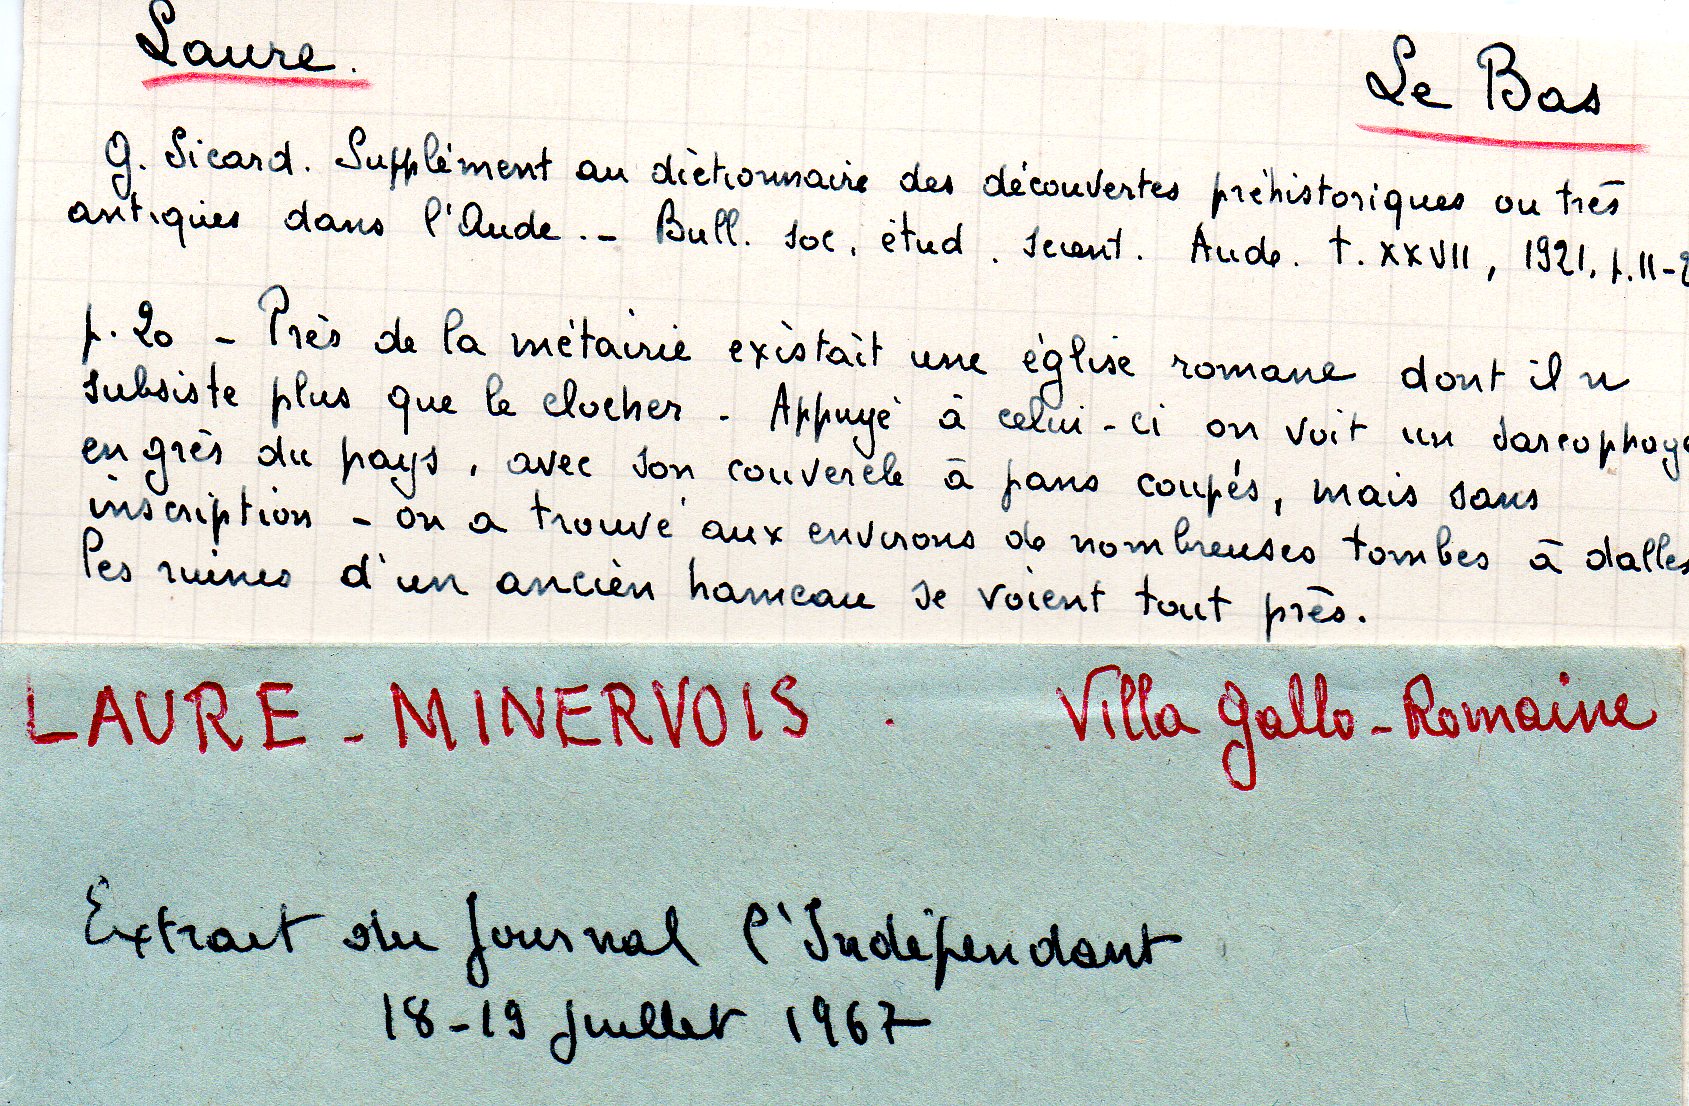 Laure. Le Bas
G. Sicard. Supplément au dictionnaire des découvertes préhistoriques ou très
antiques dans l'Aude. - Bull. soc. étud. scient. Aude. t. XXVII, 1921, p. 11-2
p. 20 - Près de la métairie existait une église romane dont il n
subsiste plus que le clocher - Appuyé à celui-ci on voit un sarcophage
en grès du pays, avec son couvercle à pans coupés, mais sans
inscription - on a trouvé aux environs de nombreuses tombes à dalles
les ruines d'un ancien hameau se voient tout près.
LAURE - MINERVOIS . Villa Gallo-Romaine
Extrait du Journal l'Indépendant
18-19 Juillet 1967